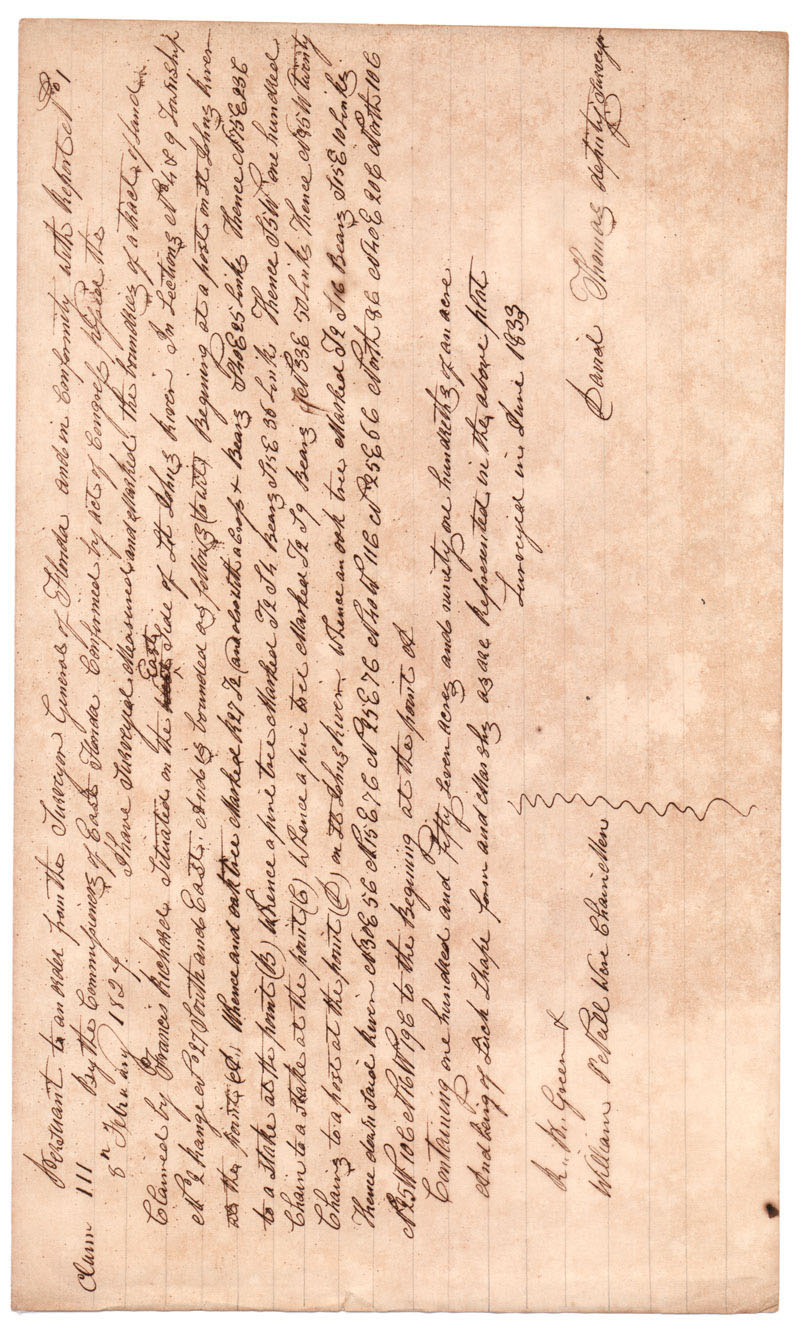 Persuant to an order from the Surveyor General of Florida and in Conformity with Report No 1
Claim 111 By the Commissioners of East Florida Confirmed by act of Congress passed the
8th February 1827.
I have Surveyed Measured and Marked the boundries of a tract of land
Claimed by Francis Richard Situated on the East Side of St Johns River In Sections No 4 & 9 Township
No 2 Range No 27 South and East And is bounded as follows (to wit) Begining at a post on St Johns River
the point (A) Whence and oak tree Marked R27 T2 and also with a Cross + Bears S40E 25 Links Thence N75E 23E
to a Stake at the point (B) Whence a pine tree Marked T2 S4 Bears S15E 36 Link Thence S5W one hundred
Chain to a Stake at the point (C) Whence a pine tree Marked T2 S9 Bears N33E 50 Link Thence N85W twenty
Chains to a post at the point (D) on St Johns River Whence an oak tree Marked T2 S16 Bears S15E 10 Links
Thence down said River N30E 5C N15E 7C N25E 7C N40W 11C N25E 6C North 8C N40E 20C North 10C
N25W 10C N16W 19C to the Begining at the point A
Containing one hundred and fifty seven acres and ninety one hundreths of an acre
And being of Such Shape form and Marks as are Represented in the above plat
Surveyed in June 1833
R. M. Green &
William McNall Were Chain Men
David Thomas deputy Surveyor